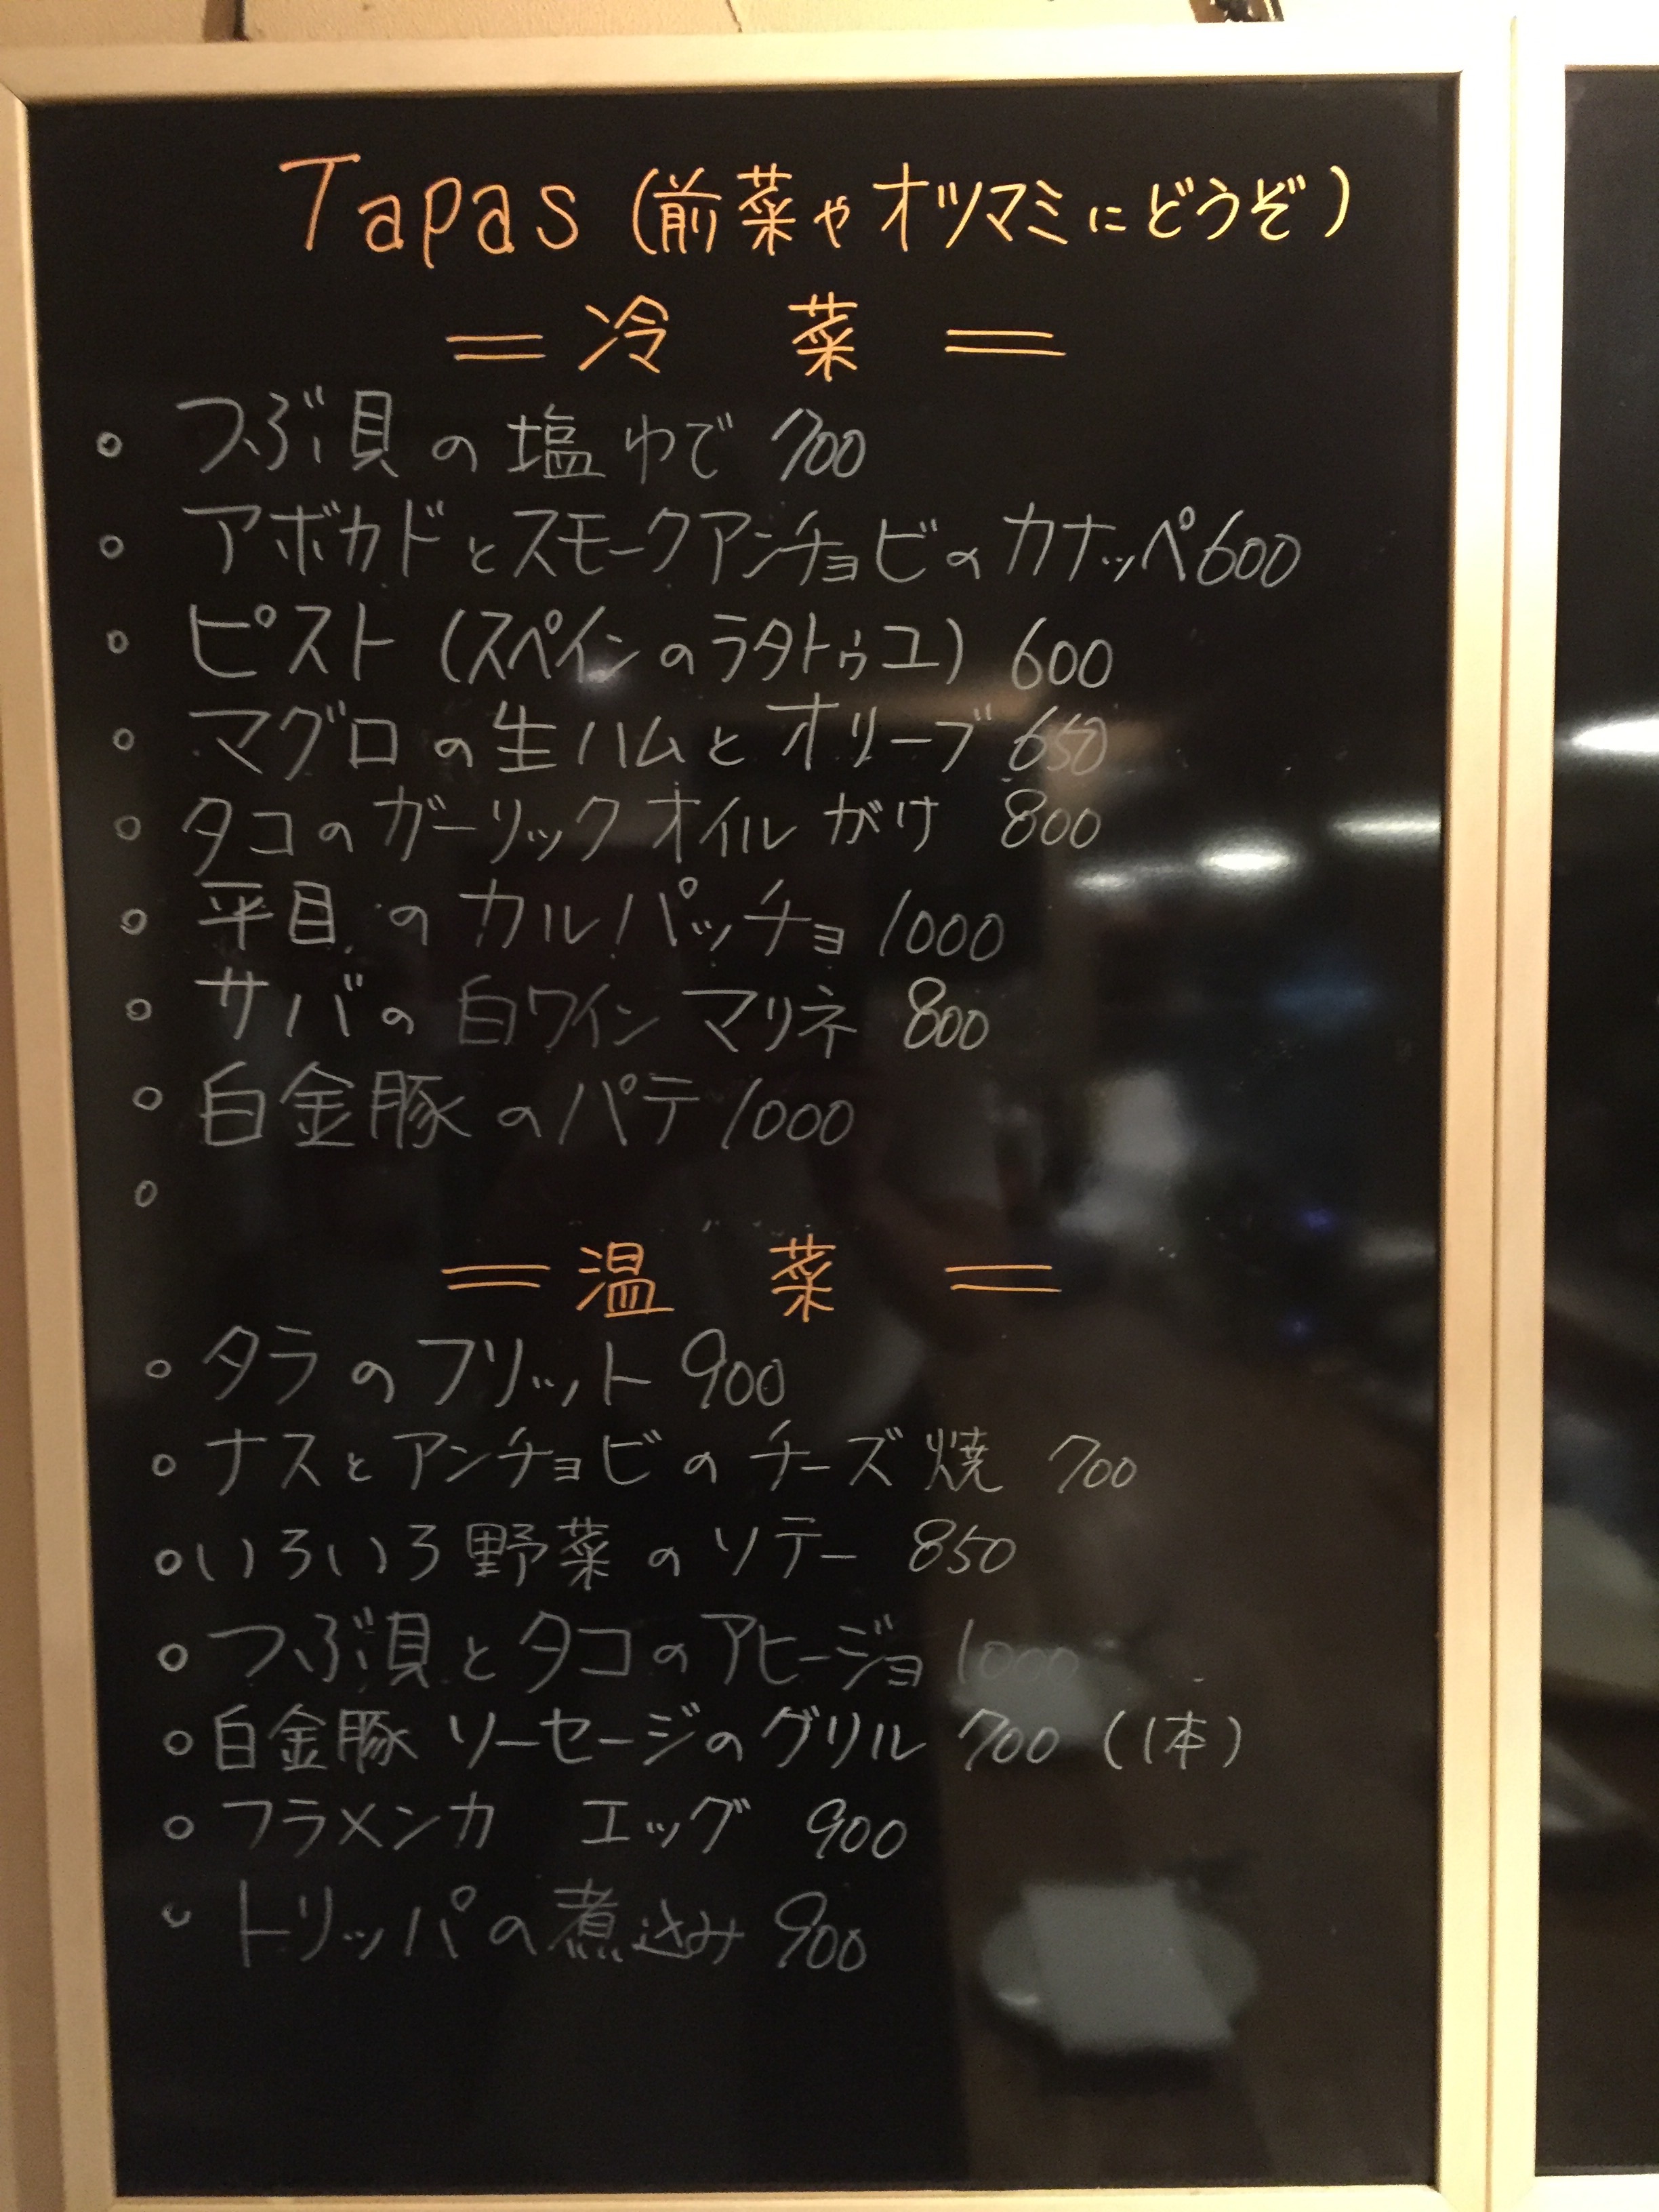 Tapas (前菜やオツマミにどうぞ)
＝冷 菜＝
○ つぶ貝の塩ゆで 700
○ アボカドとスモークアンチョビのカナッペ600
○ ピスト(スペインのラタトゥユ) 600
○ マグロの生ハムとオリーブ 650
○ タコのガーリックオイルがけ 800
○ 平目のカルパッチョ 1000
○ サバの白ワインマリネ 800
○ 白金豚のパテ 1000
○
＝温 菜＝
○ タラのフリット 900
○ ナスとアンチョビのチーズ焼 700
○ いろいろ野菜のソテー 850
○ つぶ貝とタコのアヒージョ 1000
○ 白金豚ソーセージのグリル 700 (1本)
○ フラメンカ エッグ 900
○ トリッパの煮込み 900